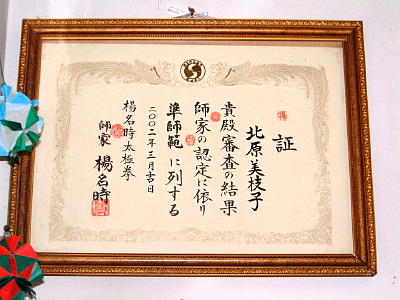 証
北原美枝子
貴殿審査の結果
師家の認定に依り
準師範に列する
二〇〇二年三月吉日
楊名時太極拳
師家 楊名時